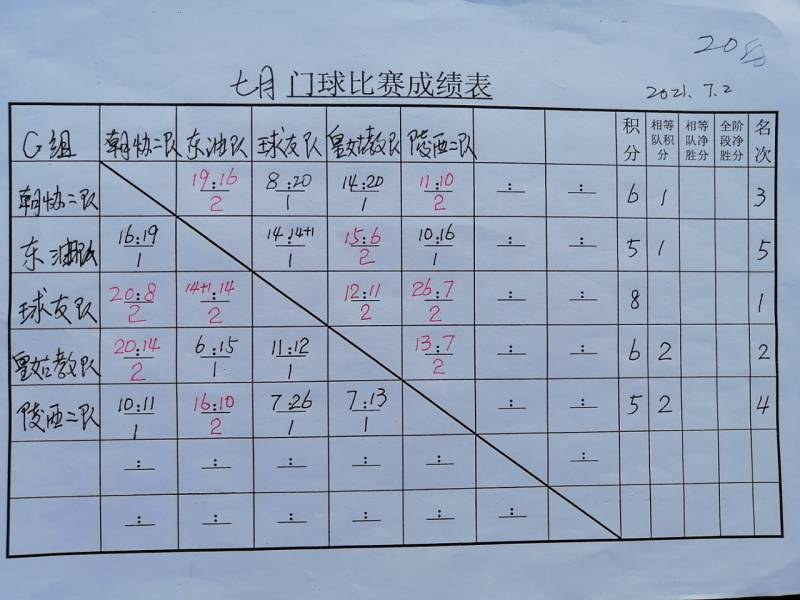 20
七月 门球比赛成绩表
2021. 7. 2
G组 朝协二队 东油队 球友队 皇姑教队 陵西二队 积分 相等队积分 相等队净胜分 全阶段净胜分 名次
朝协二队 19:16 2 8:20 1 14:20 1 11:10 2 : : 6 1 3
东油队 16:19 1 14:14+1 1 15:6 2 10:16 1 : : 5 1 5
球友队 20:8 2 14+1:14 2 12:11 2 26:7 2 : : 8 1
皇姑教队 20:14 2 6:15 1 11:12 1 13:7 2 : : 6 2 2
陵西二队 10:11 1 16:10 2 7:26 1 7:13 1 : : 5 2 4
: : : : : :
: : : : : :